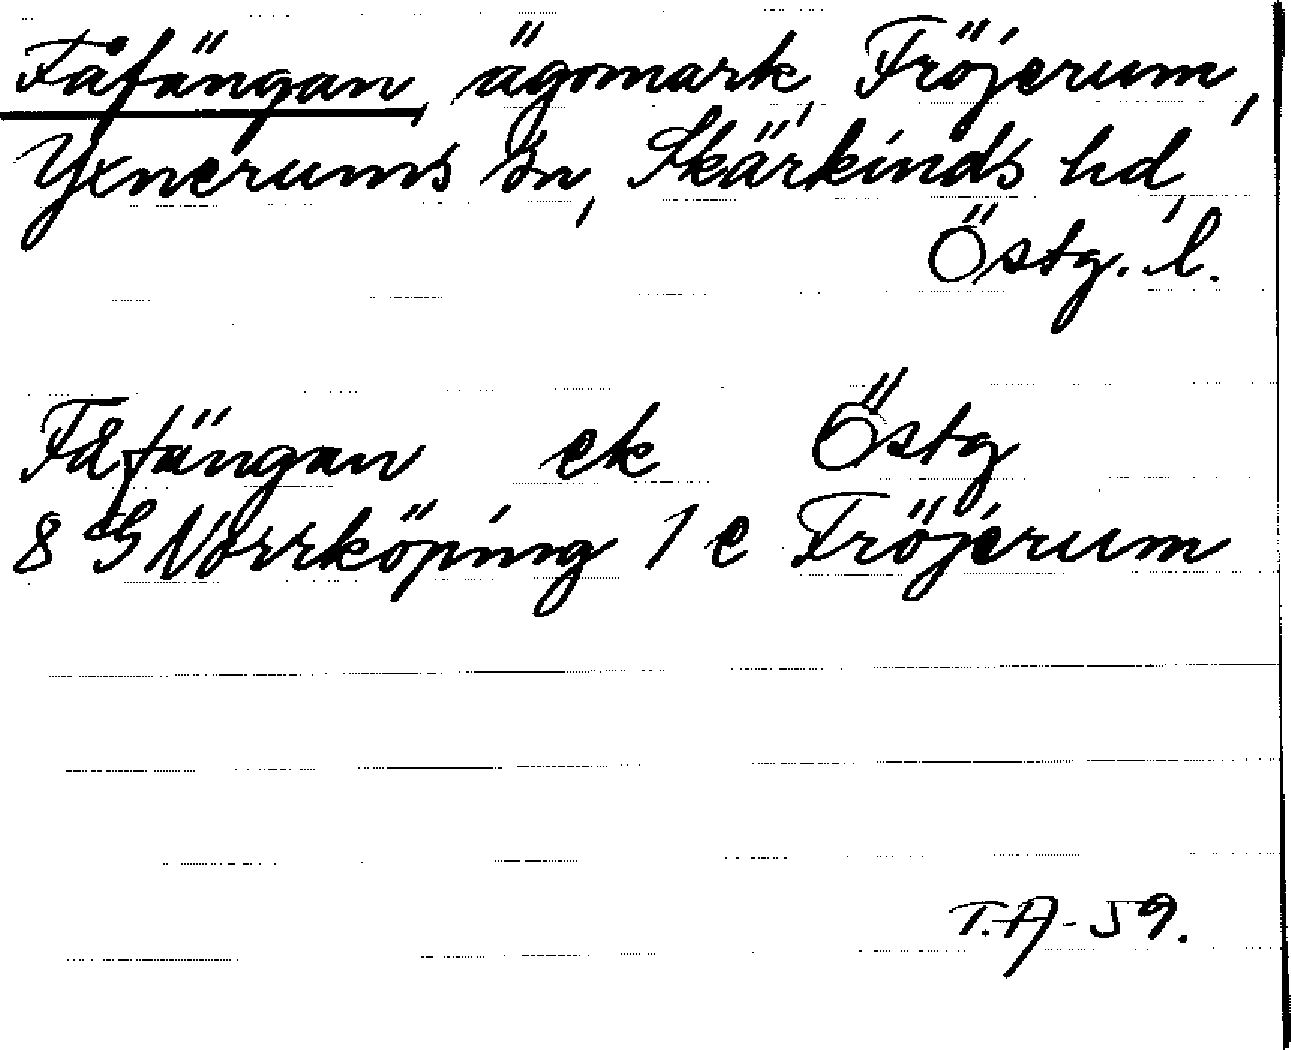 Fåfängan, ägomark, Fröjerum,
Yxnerums sn, Skärkinds hd,
Östg. l.
Fåfängan ek Östg
8 G Norrköping 1 e Fröjerum
T.A-59.